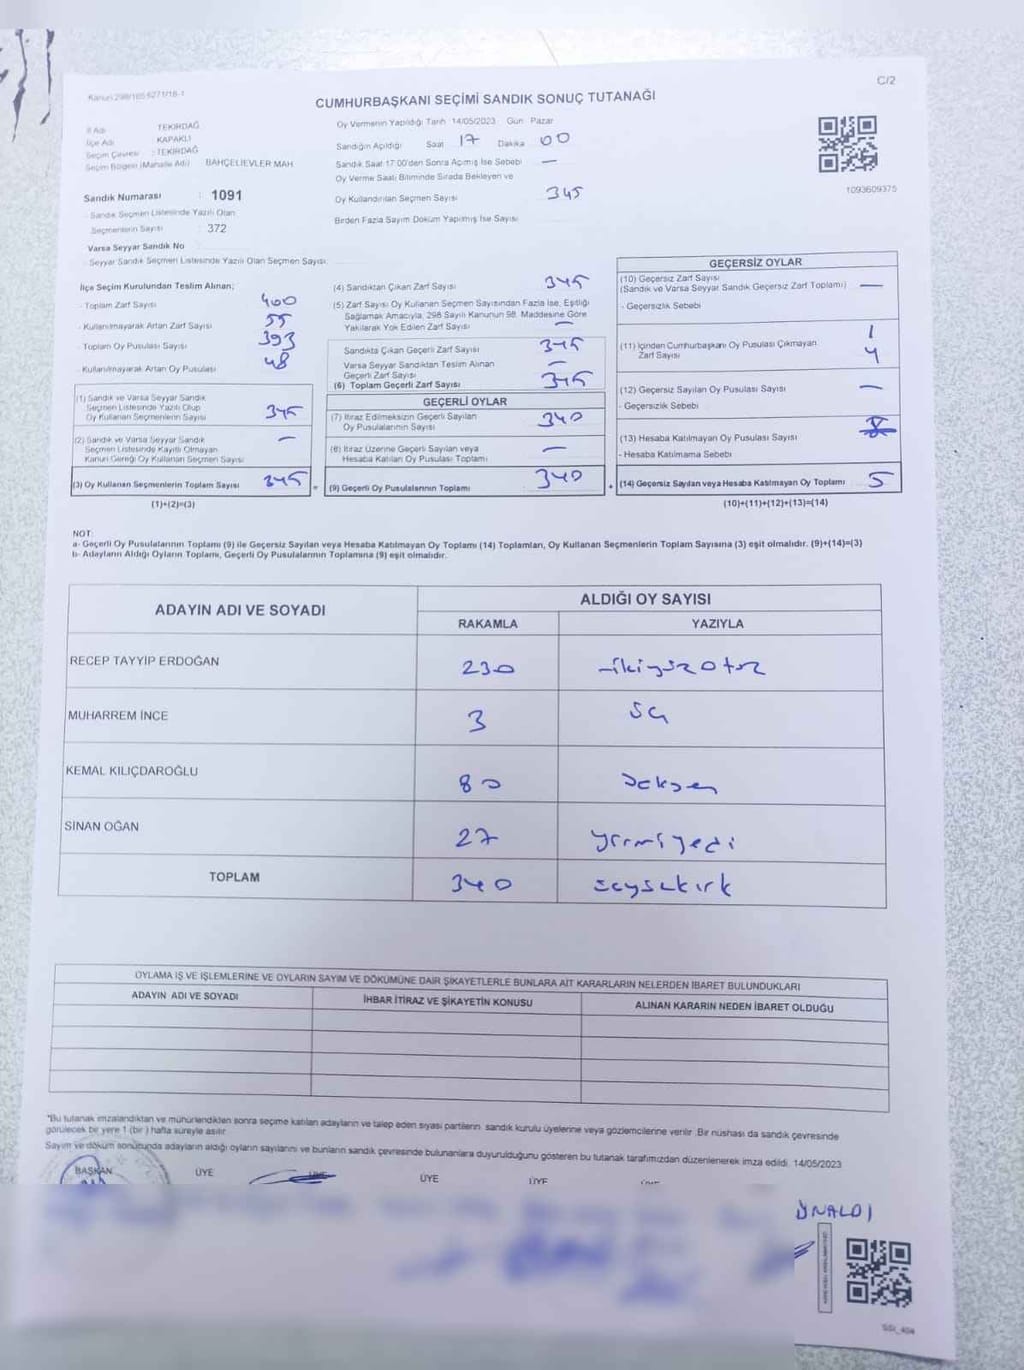 C/2
CUMHURBAŞKANI SEÇİMİ SANDIK SONUÇ TUTANAĞI
İl Adı TEKİRDAĞ
İlçe Adı KAPAKLI
Seçim Çevresi : TEKİRDAĞ
Seçim Bölgesi (Mahalle Adı) BAHÇELİEVLER MAH.
Sandık Numarası : 1091
Sandık Seçmen Listesinde Yazılı Olan
Seçmenlerin Sayısı : 372
Varsa Seyyar Sandık No
Seyyar Sandık Seçmen Listesinde Yazılı Olan Seçmen Sayısı:
Oy Vermenin Yapıldığı Tarih 14/05/2023 Gün Pazar
Sandığın Açıldığı Saat 17 Dakika 00
Sandık Saat 17:00'den Sonra Açılmış İse Sebebi —
Oy Verme Saati Bitiminde Sırada Bekleyen ve
Oy Kullandırılan Seçmen Sayısı 345
Birden Fazla Sayım Döküm Yapılmış İse Sayısı
1093609375
İlçe Seçim Kurulundan Teslim Alınan;
- Toplam Zarf Sayısı 400
- Kullanılmayarak Artan Zarf Sayısı 55
- Toplam Oy Pusulası Sayısı 393
- Kullanılmayarak Artan Oy Pusulası 48
(1) Sandık ve Varsa Seyyar Sandık
Seçmen Listesinde Yazılı Olup
Oy Kullanan Seçmenlerin Sayısı 345
(2) Sandık ve Varsa Seyyar Sandık
Seçmen Listesinde Kayıtlı Olmayan
Kanun Gereği Oy Kullanan Seçmen Sayısı —
(3) Oy Kullanan Seçmenlerin Toplam Sayısı 345
(1)+(2)=(3)
(4) Sandıktan Çıkan Zarf Sayısı 345
(5) Zarf Sayısı Oy Kullanan Seçmen Sayısından Fazla İse, Eşitliği
Sağlamak Amacıyla, 298 Sayılı Kanunun 98. Maddesine Göre
Yakılarak Yok Edilen Zarf Sayısı —
Sandıkta Çıkan Geçerli Zarf Sayısı 345
Varsa Seyyar Sandıktan Teslim Alınan
Geçerli Zarf Sayısı —
(6) Toplam Geçerli Zarf Sayısı 345
GEÇERLİ OYLAR
(7) İtiraz Edilmeksizin Geçerli Sayılan
Oy Pusulalarının Sayısı 340
(8) İtiraz Üzerine Geçerli Sayılan veya
Hesaba Katılan Oy Pusulası Toplamı —
= (9) Geçerli Oy Pusulalarının Toplamı 340
GEÇERSİZ OYLAR
(10) Geçersiz Zarf Sayısı
(Sandık ve Varsa Seyyar Sandık Geçersiz Zarf Toplamı) —
- Geçersizlik Sebebi
(11) İçinden Cumhurbaşkanı Oy Pusulası Çıkmayan
Zarf Sayısı 4
(12) Geçersiz Sayılan Oy Pusulası Sayısı —
- Geçersizlik Sebebi
(13) Hesaba Katılmayan Oy Pusulası Sayısı
- Hesaba Katılmama Sebebi
+ (14) Geçersiz Sayılan veya Hesaba Katılmayan Oy Toplamı 5
(10)+(11)+(12)+(13)=(14)
NOT:
a- Geçerli Oy Pusulalarının Toplamı (9) ile Geçersiz Sayılan veya Hesaba Katılmayan Oy Toplamı (14) Toplamları, Oy Kullanan Seçmenlerin Toplam Sayısına (3) eşit olmalıdır. (9)+(14)=(3)
b- Adayların Aldığı Oyların Toplamı, Geçerli Oy Pusulalarının Toplamına (9) eşit olmalıdır.
ADAYIN ADI VE SOYADI ALDIĞI OY SAYISI
RAKAMLA YAZIYLA
RECEP TAYYİP ERDOĞAN 230 ikiyüzotuz
MUHARREM İNCE 3 üç
KEMAL KILIÇDAROĞLU 80 seksen
SİNAN OĞAN 27 yirmiyedi
TOPLAM 340 üçyüzkırk
OYLAMA İŞ VE İŞLEMLERİNE VE OYLARIN SAYIM VE DÖKÜMÜNE DAİR ŞİKAYETLERLE BUNLARA AİT KARARLARIN NELERDEN İBARET BULUNDUKLARI
ADAYIN ADI VE SOYADI İHBAR İTİRAZ VE ŞİKAYETİN KONUSU ALINAN KARARIN NEDEN İBARET OLDUĞU
*Bu tutanak imzalandıktan ve mühürlendikten sonra seçime katılan adayların ve talep eden siyasi partilerin sandık kurulu üyelerine veya gözlemcilerine verilir. Bir nüshası da sandık çevresinde
görülecek bir yere 1 (bir) hafta süreyle asılır.
Sayım ve döküm sonucunda adayların aldığı oyların sayılarını ve bunların sandık çevresinde bulunanlara duyurulduğunu gösteren bu tutanak tarafımızdan düzenlenerek imza edildi. 14/05/2023
BAŞKAN ÜYE ÜYE ÜYE ÜYE
ÜNALDI